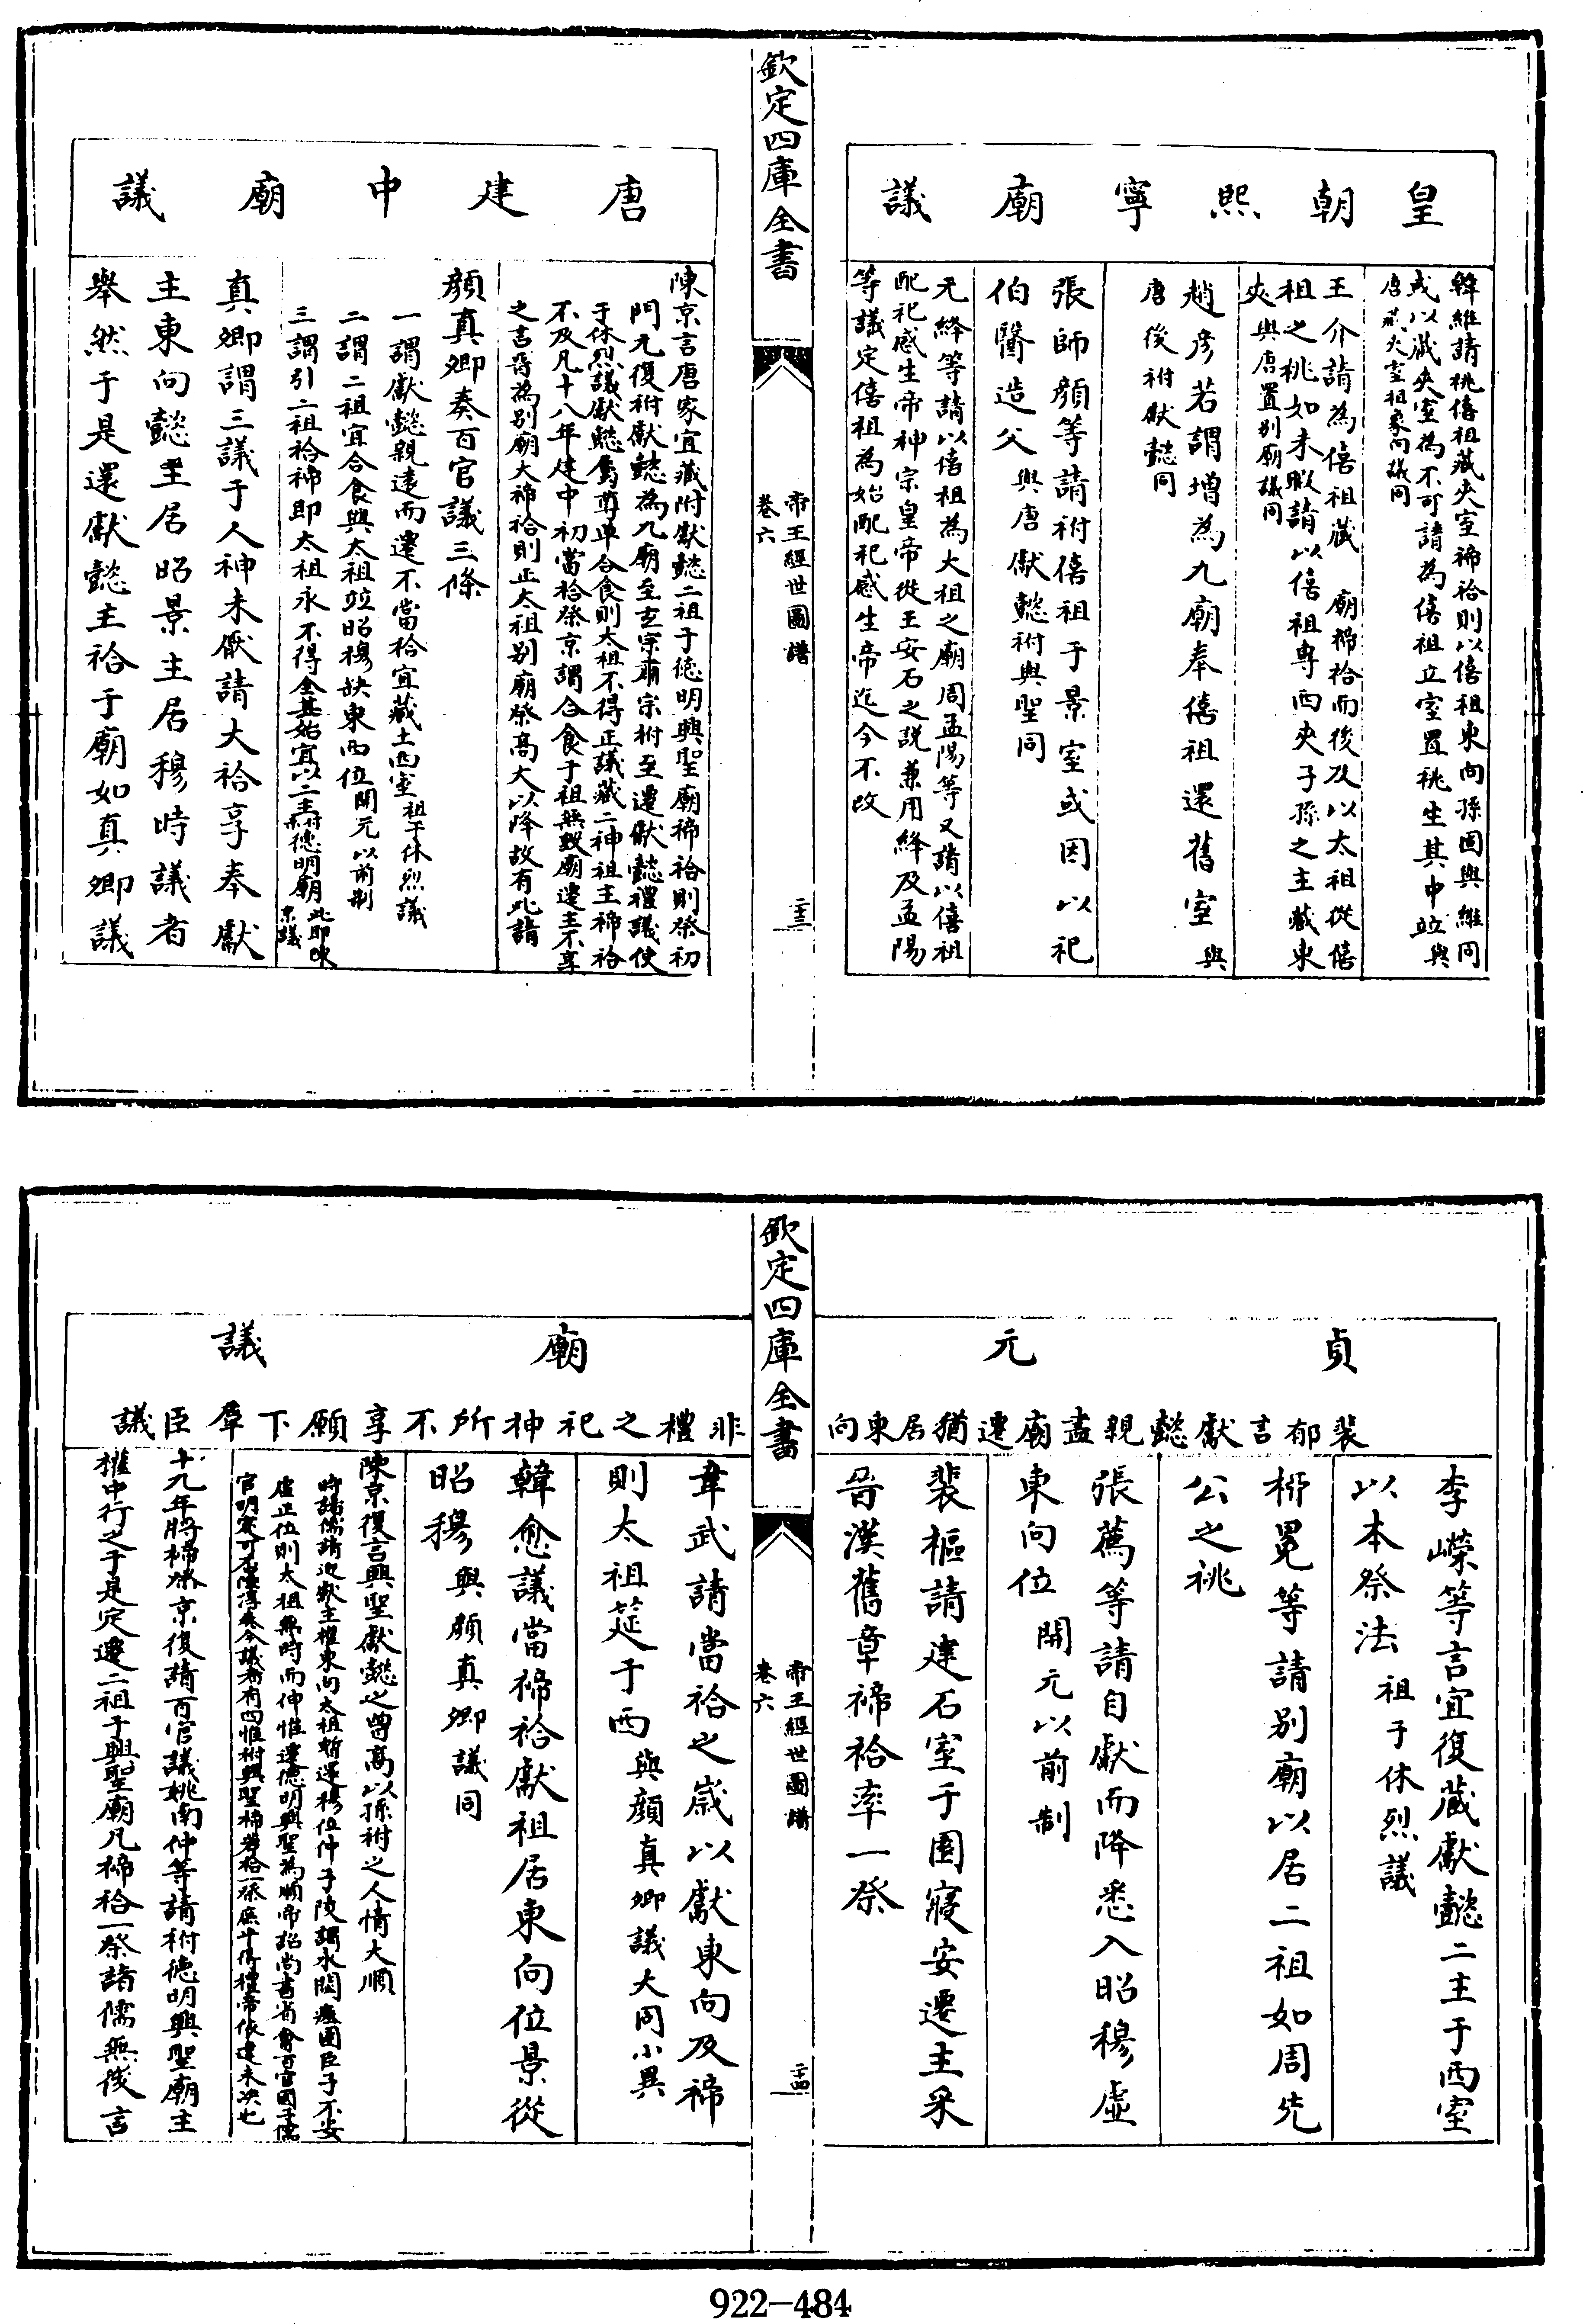 皇朝熙寧廟議
韓維請祧僖祖藏夾室禘祫則以僖祖東向孫固與維同
或以藏夾室為不可請為僖祖立室置祧主其中竝與
唐藏夾室祖東向議同
王介請為僖祖藏 廟禘祫而後及以太祖從僖
祖之祧如未暇請以僖祖專西夾子孫之主藏東
夾與唐置別廟議同
趙彦若謂增為九廟奉僖祖還舊室與
唐後祔獻懿同
張師顔等請祔僖祖于景室或因以祀
伯翳造父與唐獻懿祔與聖同
元絳等請以僖祖為大祖之廟周孟陽等又請以僖祖
配祀感生帝神宗皇帝從王安石之説兼用絳及孟陽
等議定僖祖為始配祀感生帝迄今不改
欽定四庫全書
帝王經世圖譜
卷六
二十三
唐建中廟議
陳京言唐家宜藏附獻懿二祖于德明興聖廟禘祫則祭初
門元復祔獻懿為九廟至玄宗肅宗祔至遷獻懿禮議使
于休烈議獻懿屬尊卑合食則太祖不得正議藏二神祖主禘祫
不及凡十八年建中初當祫祭京謂合食于祖無毀廟遷主不享
之言晉為別廟大禘祫則正太祖别廟祭高大以降故有此請
顔真卿奏百官議三條
一謂獻懿親遠而遷不當祫宜藏主西室祖于休烈議
二謂二祖宜合食與太祖竝昭穆缺東西位開元以前制
三謂引二祖祫禘即太祖永不得全其始宜以二主祔德明廟此即陳京議
真卿謂三議于人神未厭請大祫享奉獻
主東向懿主居昭景主居穆時議者
舉然于是還獻懿主祫于廟如真卿議
貞元
裴郁言獻懿親盡廟遷猶居東向
李嶸等言宜復藏獻懿二主于西室
以本祭法祖于休烈議
栁冕等請别廟以居二祖如周先
公之祧
張薦等請自獻而降悉入昭穆虚
東向位開元以前制
裴樞請建石室于園寢安遷主采
晉漢舊章禘祫率一祭
欽定四庫全書
帝王經世圖譜
卷六
二十四
廟議
非禮之祀神所不享願下羣臣議
韋武請當祫之嵗以獻東向及禘
則太祖筵于西與顔真卿議大同小異
韓愈議當禘祫獻祖居東向位景從
昭穆與顔真卿議同
陳京復言興聖獻懿之曽高以孫祔之人情大順
時諸儒請迎獻主權東向太祖暫還穆位仲子陵謂永閟瘞園臣子不安
虚正位則太祖無時而伸惟遷德明興聖為順帝詔尚書省會百官國子儒
官明定可否陸淳奏今議者有四惟祔興聖禘若祫一祭庶乎得禮帝依違未决也
十九年將禘祭京復請百官議姚南仲等請祔德明興聖廟主
權中行之于是定遷二祖于興聖廟凡禘祫一祭諸儒無後言
922-484